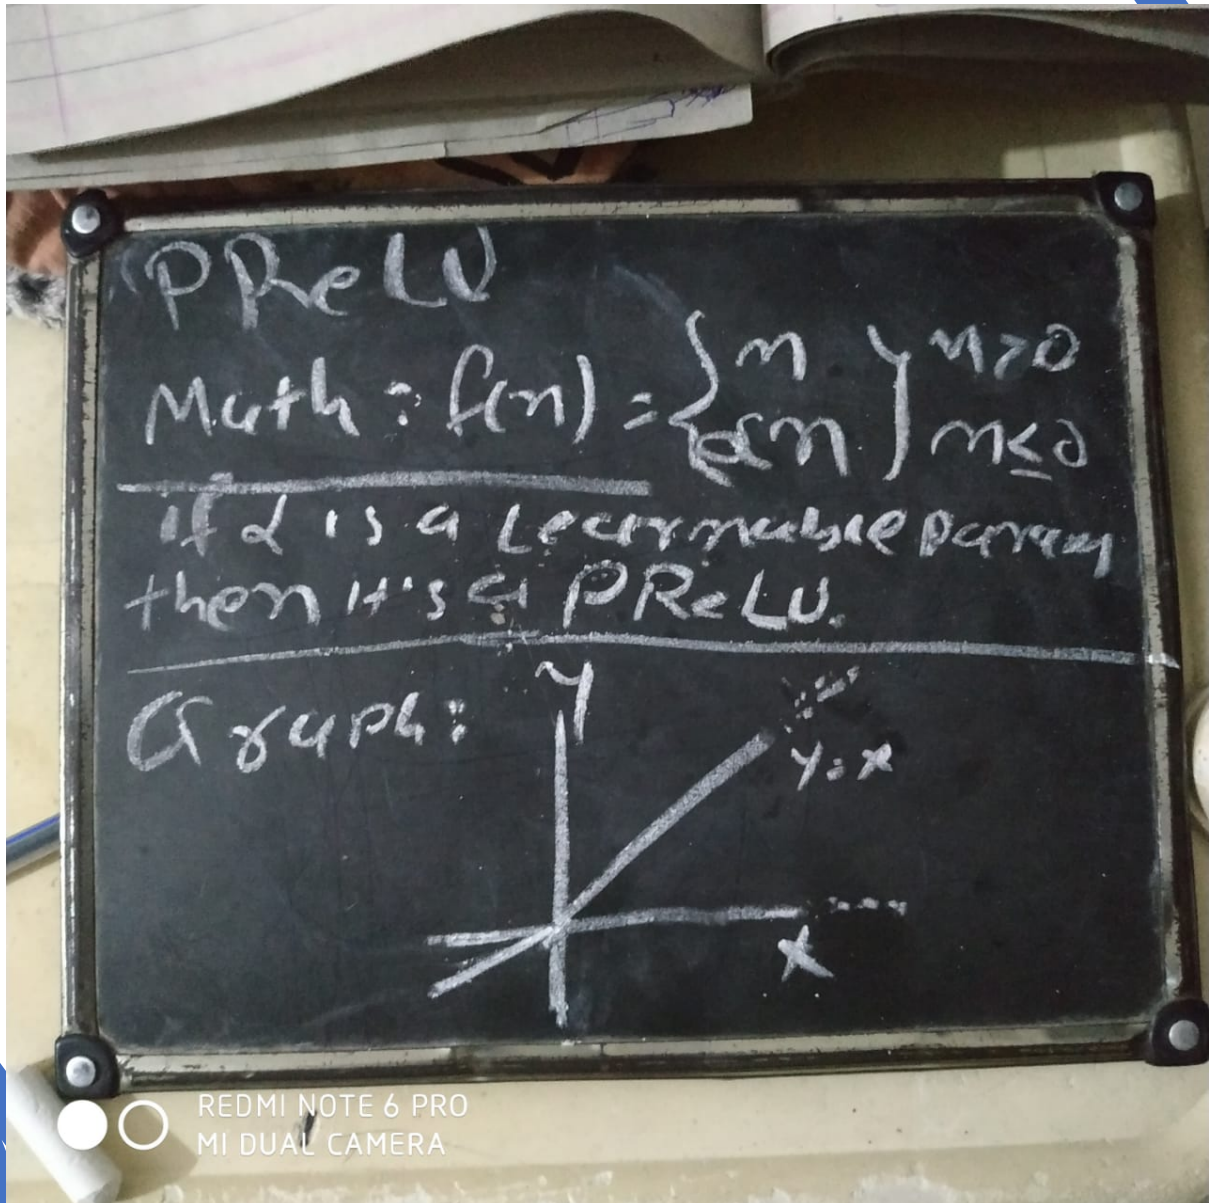 PReLU
Math : f(n) = { n } n>0
αn } n≤0
if α is a Learnable param
then it's a PReLU.
Graph:
y
y=x
x
REDMI NOTE 6 PRO
MI DUAL CAMERA